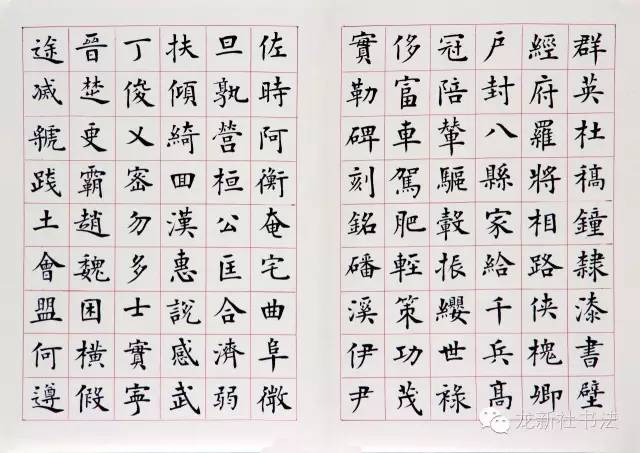 群英杜稿鐘隸漆書壁
經府羅將相路俠槐卿
戶封八縣家給千兵高
冠陪輦驅轂振纓世祿
侈富車駕肥輕策功茂
實勒碑刻銘磻溪伊尹
佐時阿衡奄宅曲阜微
旦孰營桓公匡合濟弱
扶傾綺囬漢惠說感武
丁俊乂密勿多士實寧
晉楚更霸趙魏困橫假
途滅虢践土會盟何遵
龙新社书法